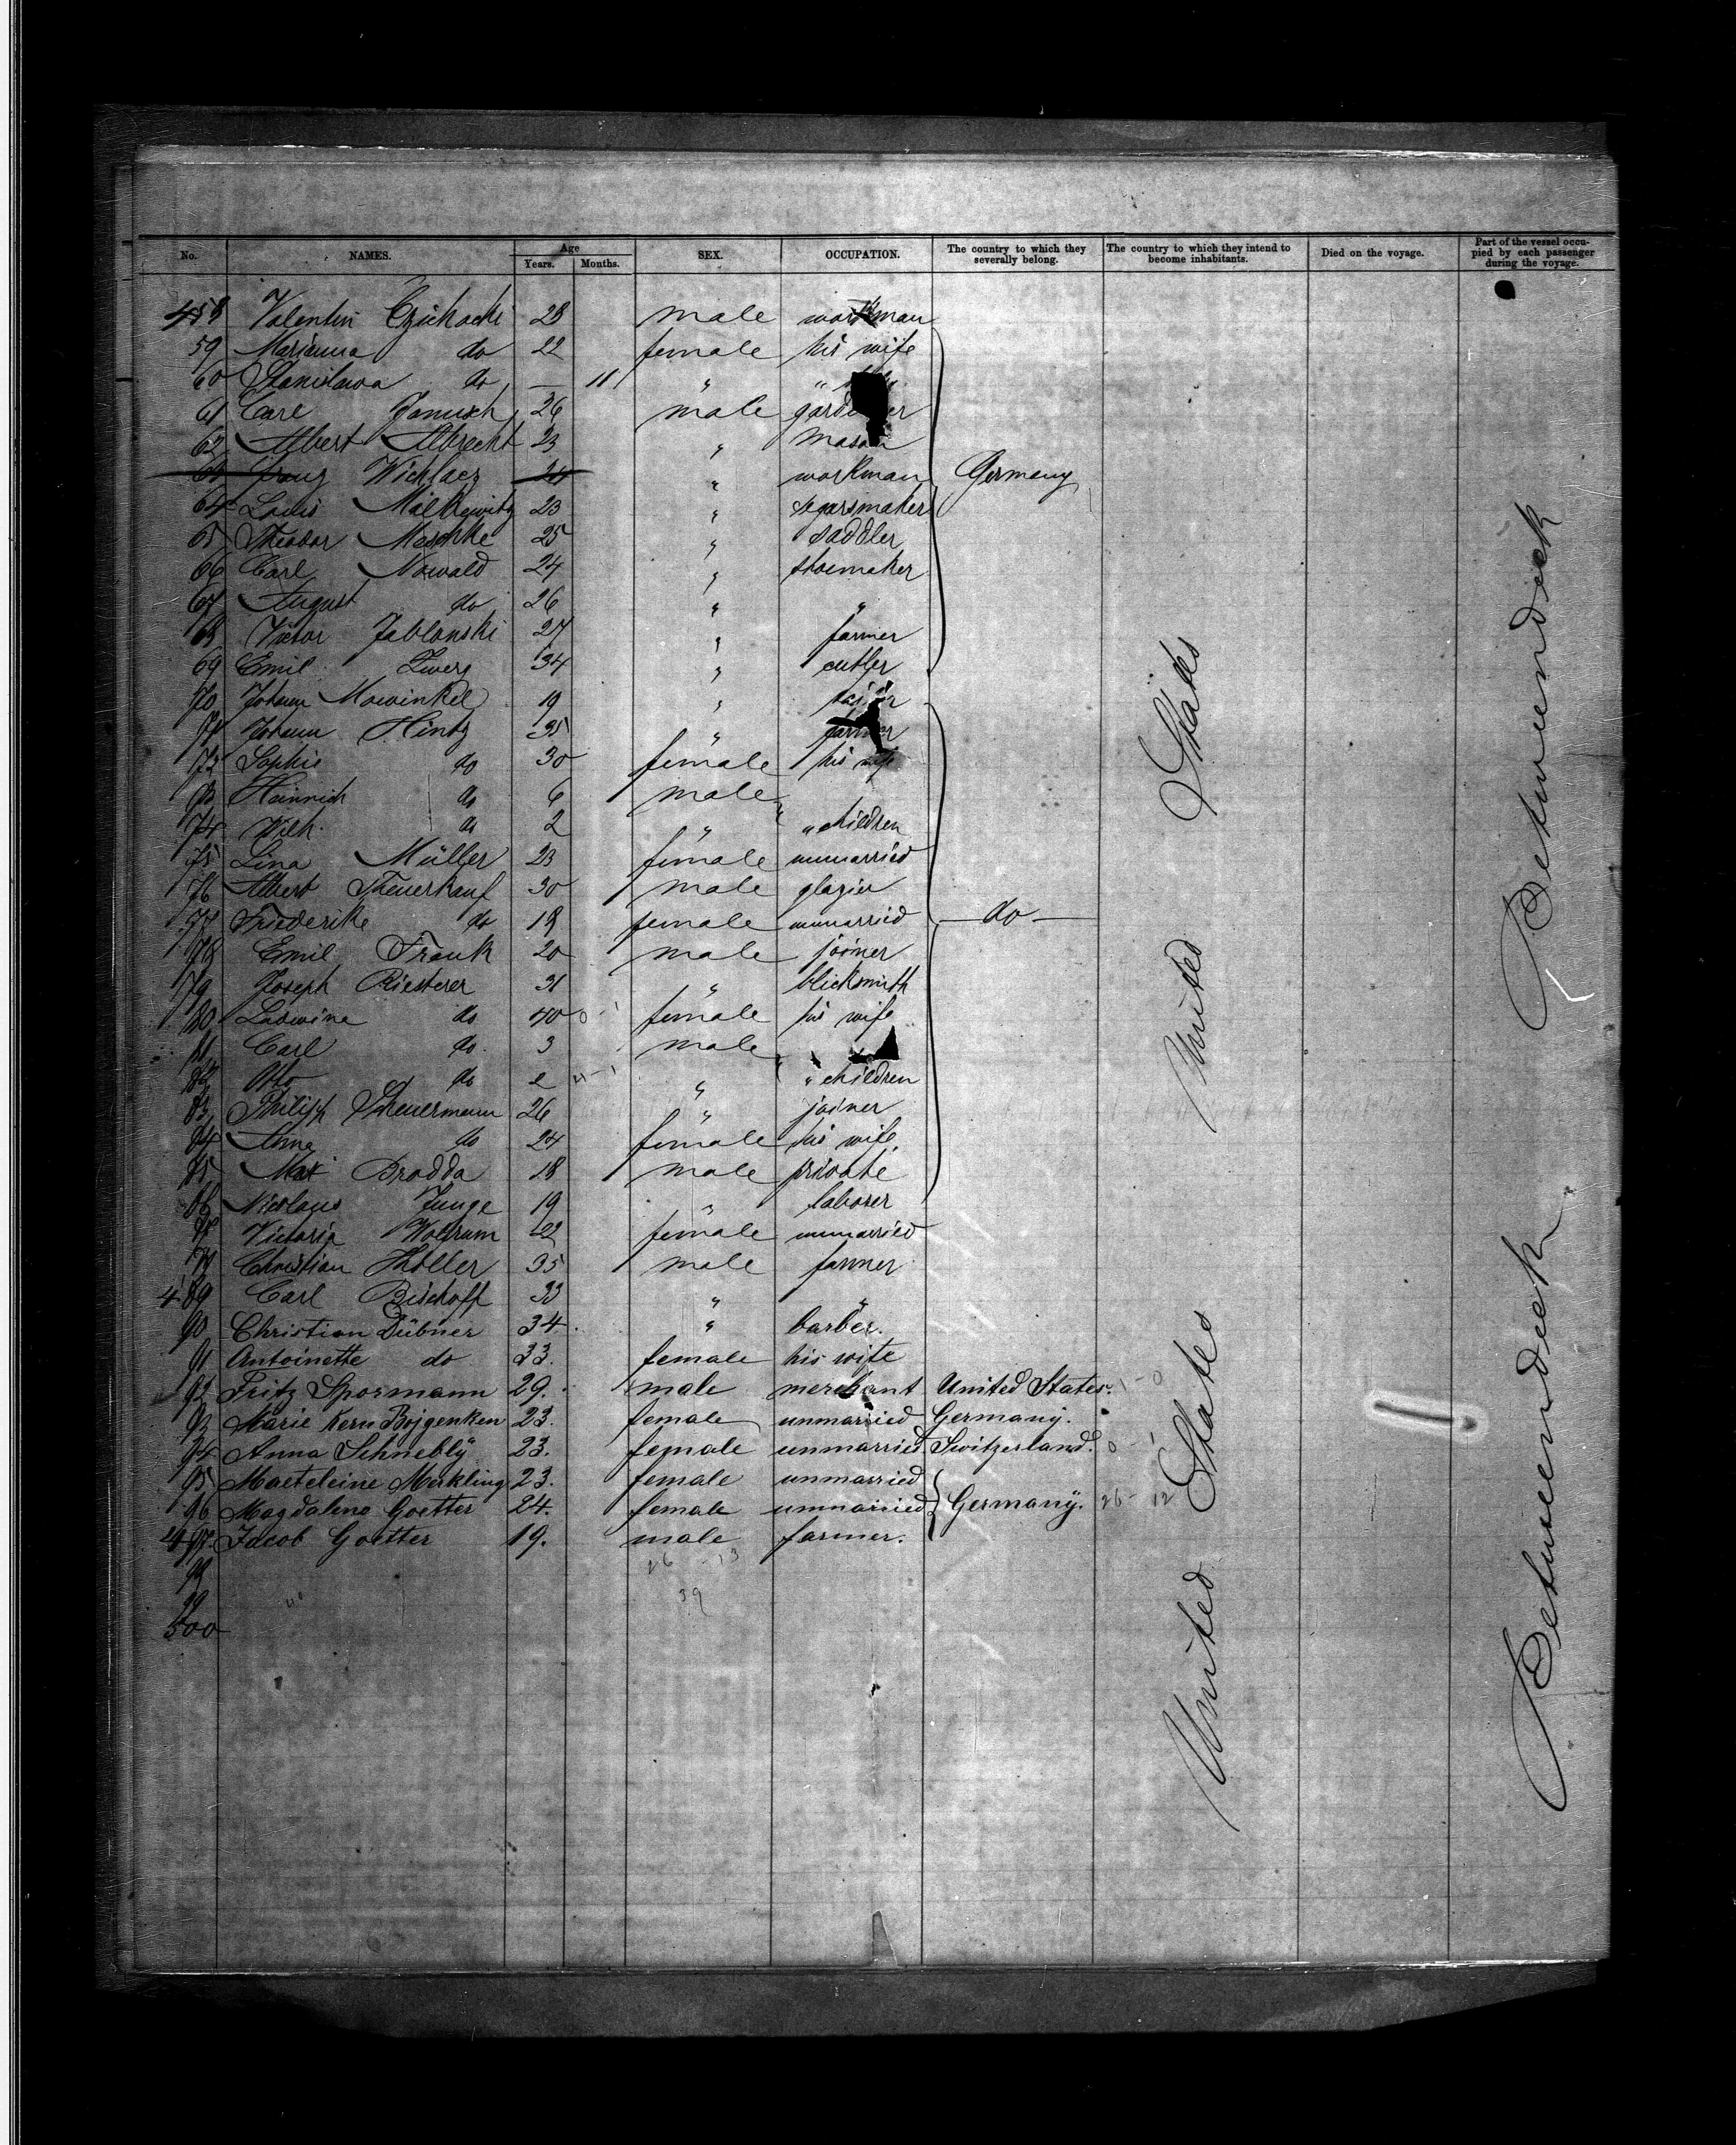 No. NAMES. Age Years. Months. SEX. OCCUPATION. The country to which they severally belong. The country to which they intend to become inhabitants. Died on the voyage. Part of the vessel occupied by each passenger during the voyage.
458 Valentin 28 male workman
59 Marianna do 22 female his wife
60 Stanislawa do — 11 " "
61 Carl Janusch 26 male gardener
62 Albert Albrecht 23 " mason
63 24 " workman Germany
64 Louis 23 " segarsmaker
65 Theodor Maschke 25 " saddler
66 Carl Nowald 24 " shoemaker
67 August do 26 " "
68 Victor Jablonski 27 " farmer
69 Emil Zwerg 34 " cutler
70 Johann Mowinkel 19 "
71 Johann Hintz 35 " farmer
72 Sophie do 30 female his wife
73 Heinrich do 6 male
74 Wilh. do 2 " " children
75 Lina Müller 23 female unmarried
76 Albert Steuerkauf 30 male glazier
77 Friederike do 18 female unmarried —do—
78 Emil Frank 20 male joiner
79 Joseph Riesterer 31 " blicksmith
80 Ludwina do 40 female his wife
81 Carl do 3 male
82 Otto do 2 " " children
83 Philipp Scheuermann 26 " joiner
84 Anna do 24 female his wife
85 Max Brodda 18 male private
86 Nicolaus Junge 19 " laborer
87 Victoria Wolfrum 22 female unmarried
88 Christian 35 male farmer
489 Carl Bischoff 33 " "
90 Christian Dübner 34. " barber.
91 Antoinette do 33. female his wife
92 Fritz Spormann 29. male merchant United States.
93 Marie Kern 23. female unmarried Germany.
94 Anna Schnebly 23. female unmarried Switzerland.
95 Merkling 23. female unmarried
96 Magdalena Goetter 24. female unmarried Germany. 26- 12
497. Jacob Goetter 19. male farmer.
26 -13
98
39
99
500
United States
United States
Betweendeck
Betweendeck